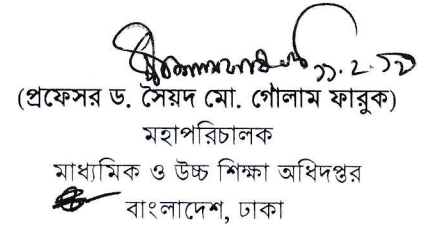 ১১.২.১৯
(প্রফেসর ড. সৈয়দ মো. গোলাম ফারুক)
মহাপরিচালক
মাধ্যমিক ও উচ্চ শিক্ষা অধিদপ্তর
বাংলাদেশ, ঢাকা